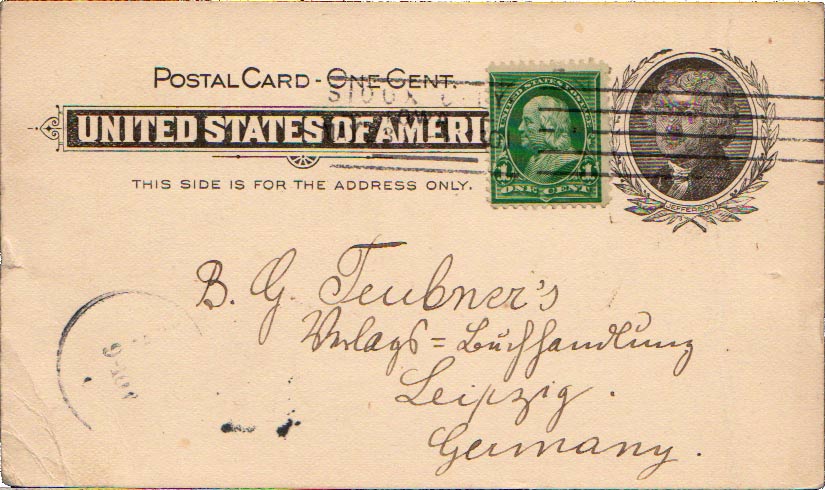 POSTAL CARD - ONE CENT.
SIOUX CITY
UNITED STATES OF AMERI
UNITED STATES POSTAGE
1 1
ONE CENT
JEFFERSON
THIS SIDE IS FOR THE ADDRESS ONLY.
B. G. Teubner's
Verlags = Buchhandlung
Leipzig.
Germany.